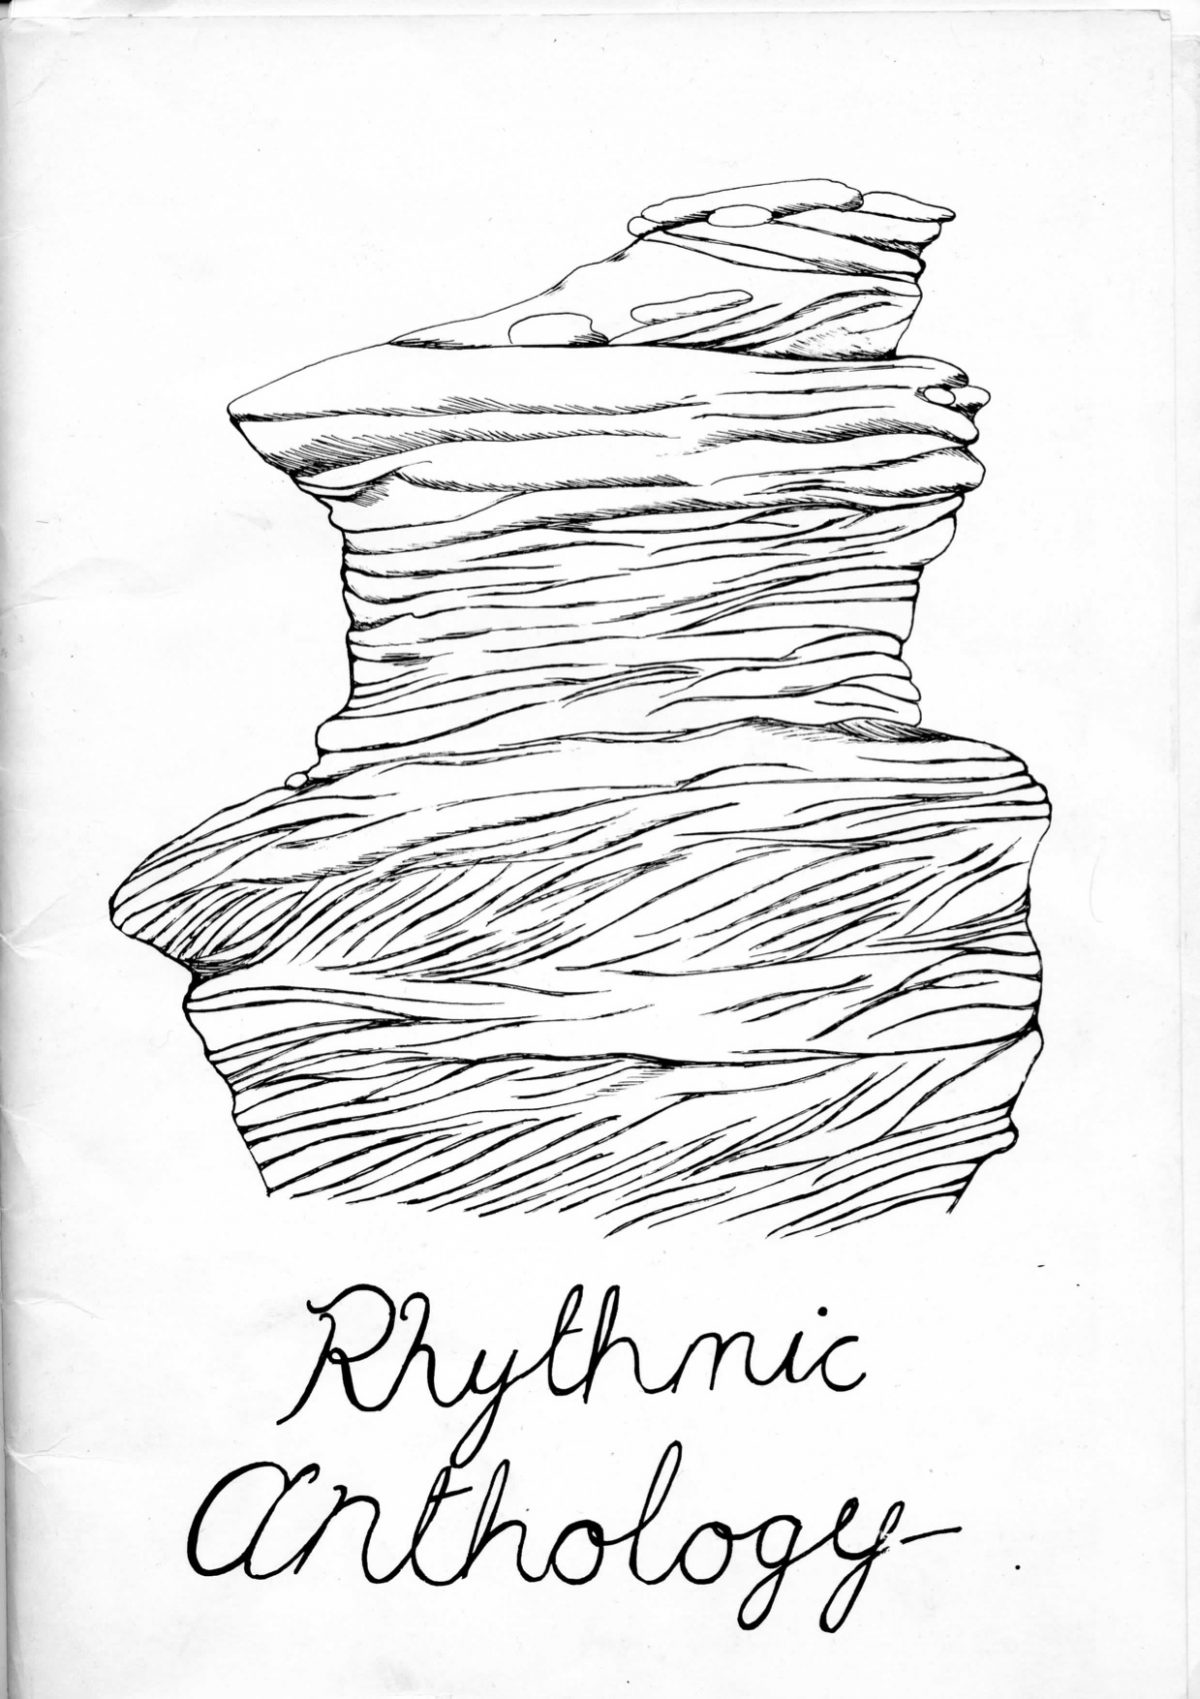 Rhythmic
Anthology